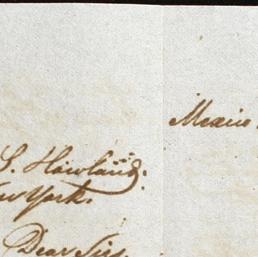 Mexico
S. Howland
New York.
Dear Sirs,